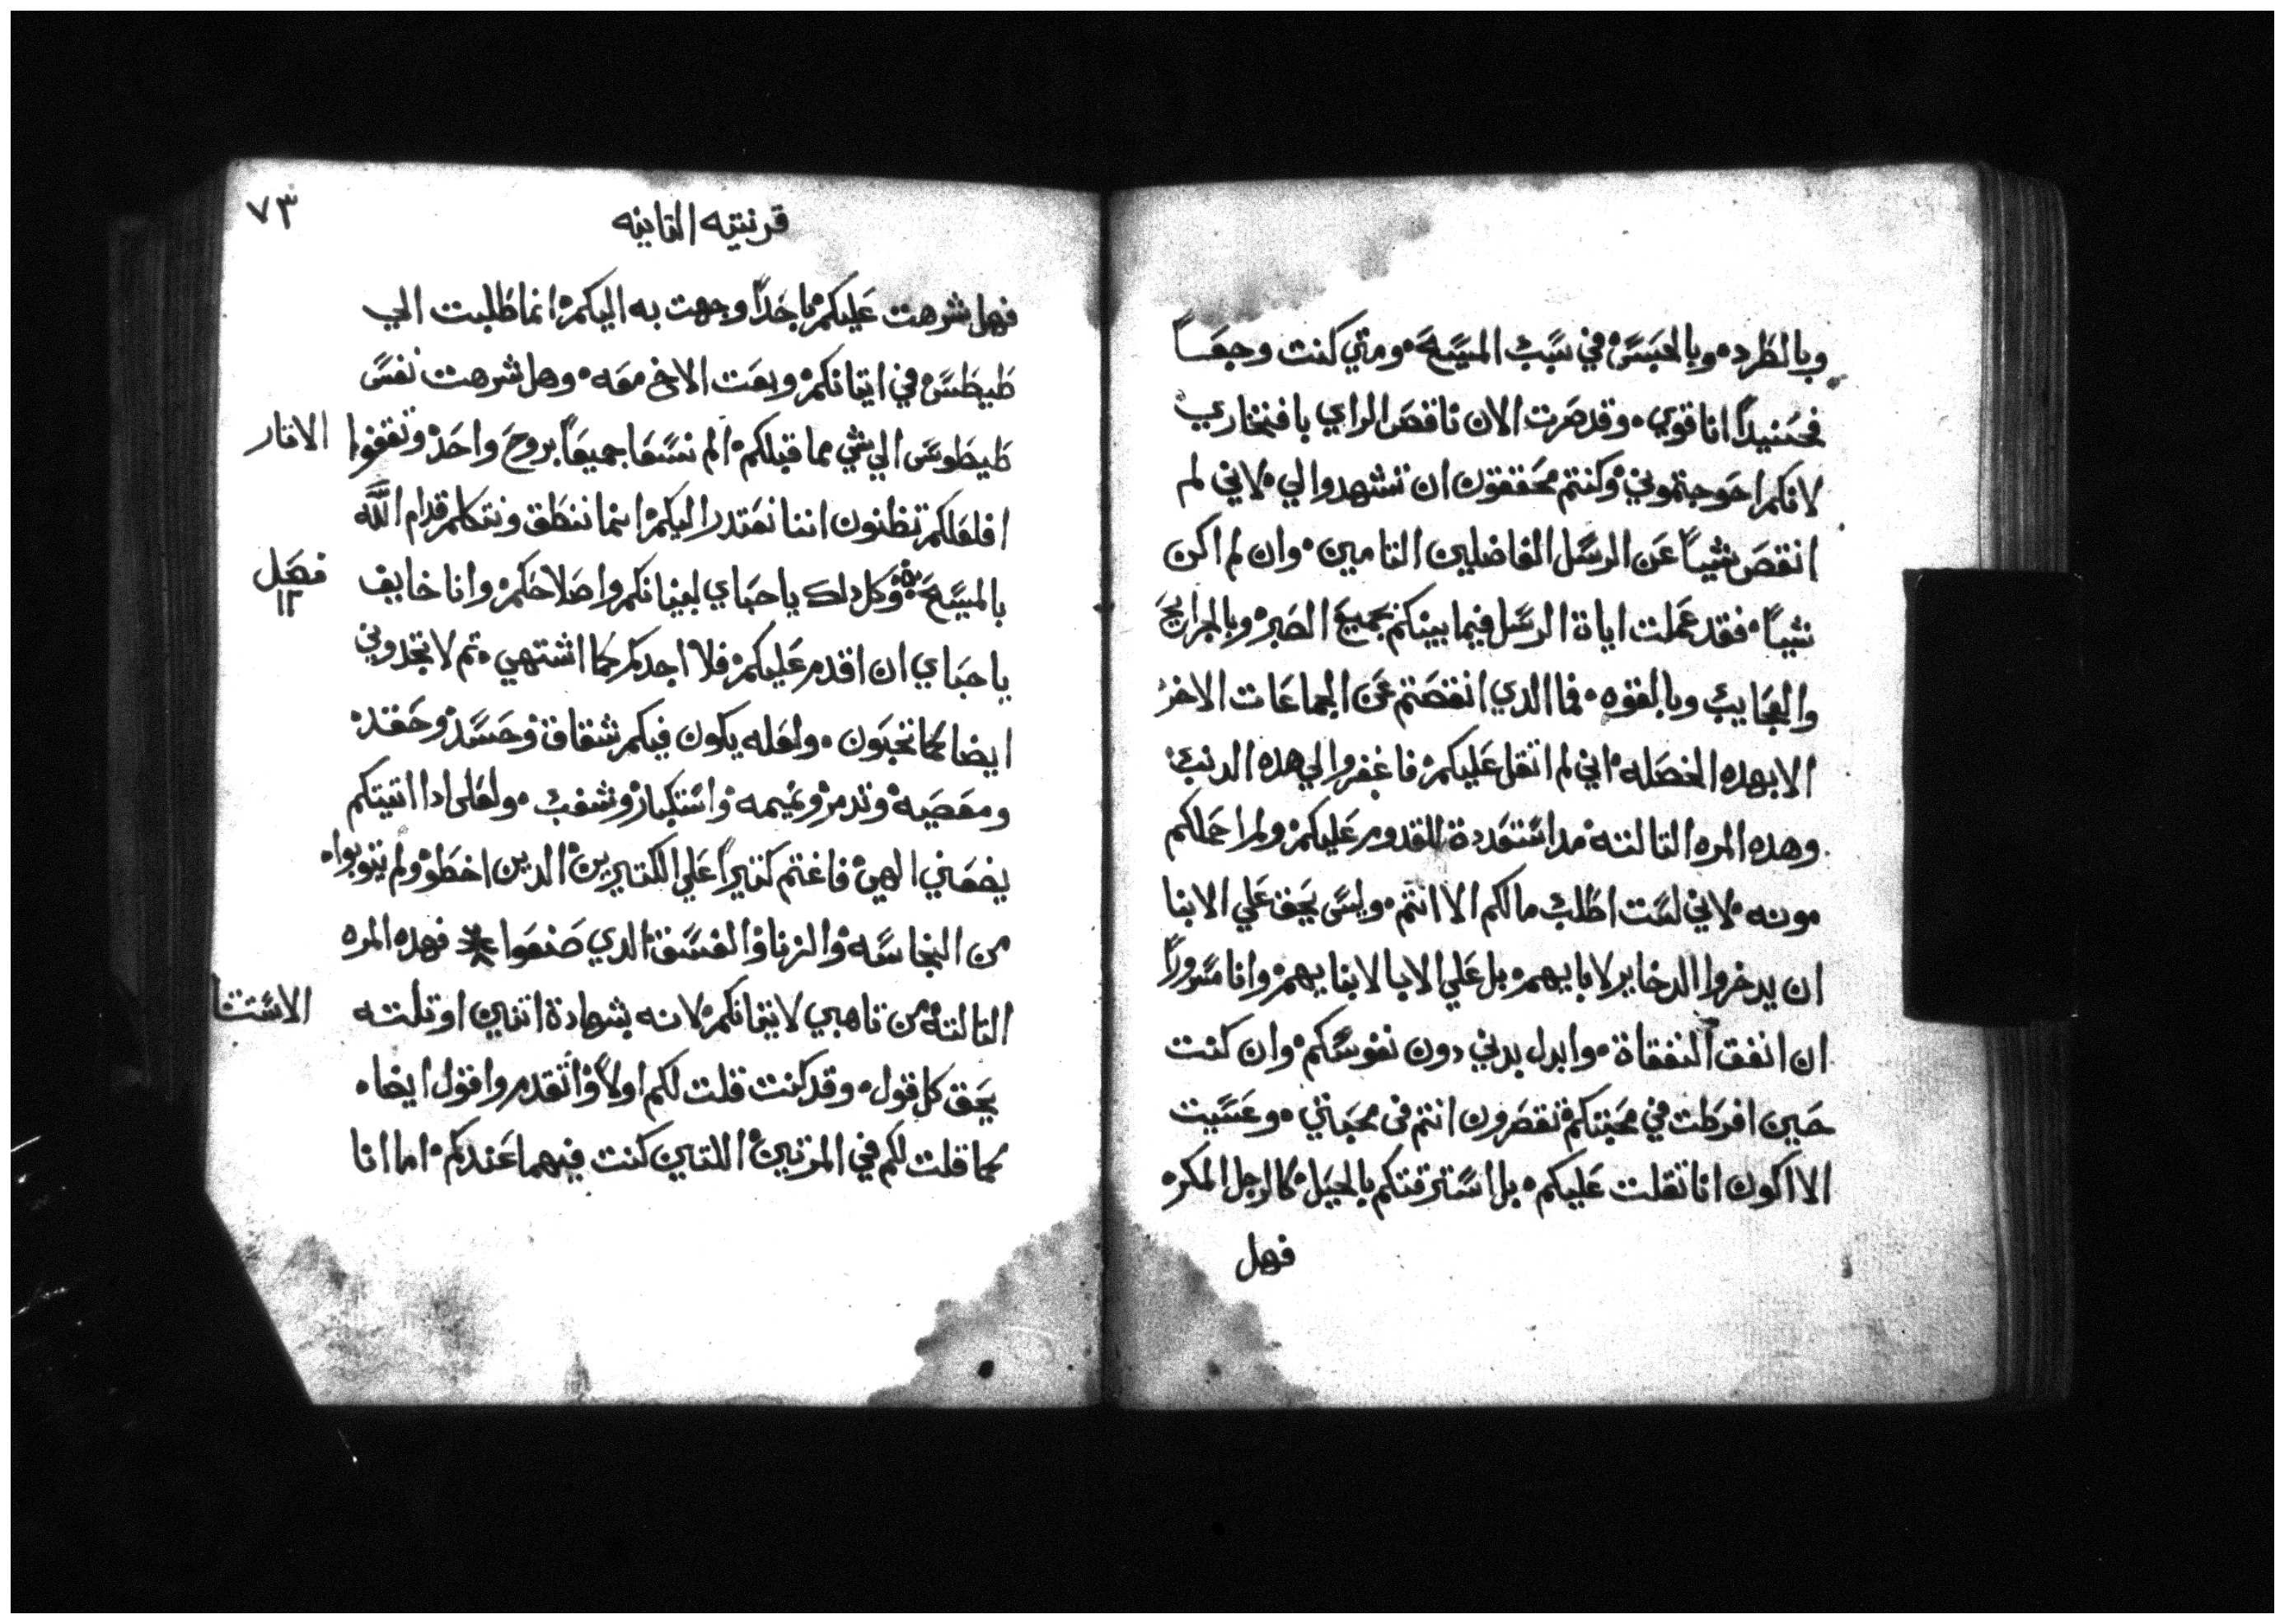 وبالطرده وبالحبس في سبب المسيح ومتي كنت وجعاً
فحنيداً انا قوي وقد صرت الان ناقص الراي بافتخاري
لانكم احوجتموني وكنتم محققون ان تشهدوا لي لاني لم
انقص شياً عن الرسل الفاضلين التامين وان لم اكن
شياً فقد عملت اياة الرسل فيما بينكم بجميع الصبر وبالجرايح
والعجايب وبالقوه فما الدي انتقصتم عن الجماعات الاخر
الا بهده الخصله اني لم اتقل عليكم فاغفروا لي هده الدنب
وهده المره التالته مد استعددة للقدوم عليكم ولم احملكم
مونه لاني لست اطلب مالكم الا انتم وليس يحق علي الابنا
ان يدخروا الدخاير لابايهم بل علي الابا لابنايهم وانا مسوراً
ان انفق النفقاة وابدل بدني دون نفوسكم وان كنت
حين افرطت في محبتكم تقصرون انتم في محبتي وعسيت
الا اكون انا تقلت عليكم بل استرقتكم بالحيل كالرجل المكره
فهل
٧٣
قرنتيه التانيه
فهل شرهت عليكم باحداً وجهت به اليكم انما طلبت الي
طيطس في اتيانكم وبعت الاخ معه وهل شرهت نفس
طيطوس الي شي مما قبلكم الم نسعا جميعاً بروح واحد ونقفوا الاتار
افلعلكم تظنون اننا نعتدر اليكم انما ننطق ونتكلم قدام الله
بالمسيح وكل دلك ياحباي لبنيانكم واصلاحكم وانا خايف
فصل
١٢
ياحباي ان اقدم عليكم فلا اجدكم كما اشتهي تم لا تجدوني
ايضا كما تحبون ولعله يكون فيكم شقاق وحسد وحقد
ومعصيه وتدمر ونميمه واستكبار وشغب ولعلي ادا اتيتكم
يضعني الهي فاغتم كتيراً علي الكتيرين الدين اخطو ولم يتوبوا
من النجاسه والزنا والفسق الدي صنعوا فهده المره
التالته من تاهبي لاتيانكم لانه بشهادة اتنين او تلته
الاستتنا
يحق كل قول وقد كنت قلت لكم اولاً واتقدم واقول ايضا
كما قلت لكم في المرتين اللتين كنت فيهما عندكم اما انا